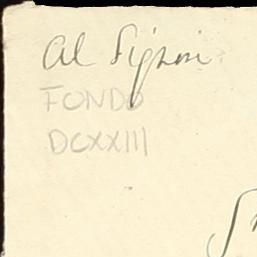 Al Signor
FONDO
DCXXIII